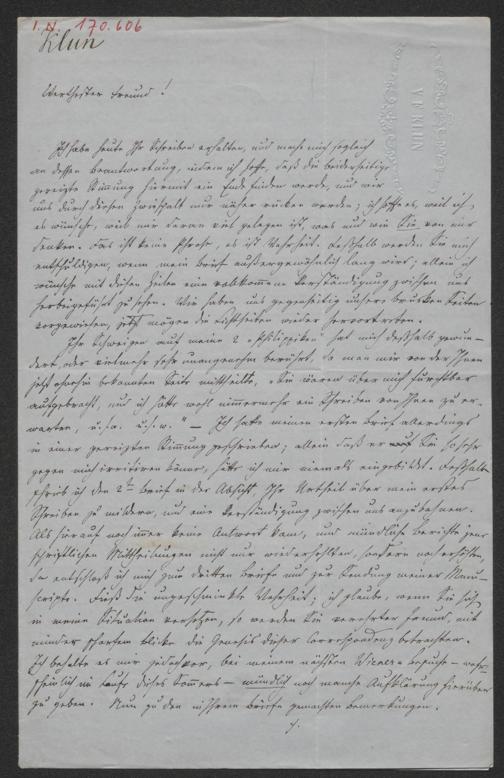 I.N. 170.606
Klun
V F KLUN
Werthester Freund!
Ich habe heute Ihr Schreiben erhalten, und mache mich sogleich
an dessen Beantwortung, indem ich hoffe, daß die beiderseitige
gereizte Stimmung hiermit ein Ende finden werde, und wir
uns durch diesen Zwiespalt nur näher rücken werden; ich hoffe es, weil ich
es wünsche, weil mir daran viel gelegen ist, was und wie Sie von mir
denken. Das ist keine Phrase, es ist Wahrheit. Deßhalb werden Sie mich
entschuldigen, wenn mein Brief außergewöhnlich lang wird; allein ich
wünsche mit diesen Zeilen eine vollkommene Verständigung zwischen uns
herbeigeführt zu sehen. Wir haben uns gegenseitig unsere Seiten
vorgewiesen, jetzt mögen die Lichtseiten wieder hervortreten.
Ihr Schweigen auf meine 2 „Philippiken" hat mich deßhalb gewun-
dert, oder vielmehr sehr unangenehm berührt, da man mir von der Ihnen
jetzt ohnehin bekannten Seite mittheilte, „Sie wären über mich furchtbar
aufgebracht, und ich hätte wohl nimmermehr ein Schreiben von Ihnen zu er-
warten, u.s.w. u.s.w." – Ich hatte meinen ersten Brief allerdings
in einer gereizten Stimmung geschrieben; allein daß er Sie so sehr
gegen mich irritiren könne, hätte ich mir niemals eingebildet. Deßhalb
schrieb ich den 2ten Brief in der Absicht Ihr Urtheil über mein erstes
Schreiben zu mildern, und eine Verständigung zwischen uns anzubahnen.
Als hierauf noch immer keine Antwort kam, und mündliche Berichte jene
schriftlichen Mittheilungen nicht nur wiederholten, sondern noch erhöhten,
da entschloß ich mich zum dritten Briefe und zur Sendung meiner Manu-
scripte. Dieß die ungeschminkte Wahrheit; ich glaube, wenn Sie sich
in meine Situation versetzen, so werden Sie verehrter Freund, mit
minder scharfem Blicke die Genesis dieser Correspondenz betrachten.
Ich behalte es mir jedoch vor, bei meinem nächsten Wiener Besuche – wahr-
scheinlich im Laufe dieses Sommers – mündlich noch manche Aufklärung hierüber
zu geben. Nun zu den in Ihrem Briefe gemachten Bemerkungen.